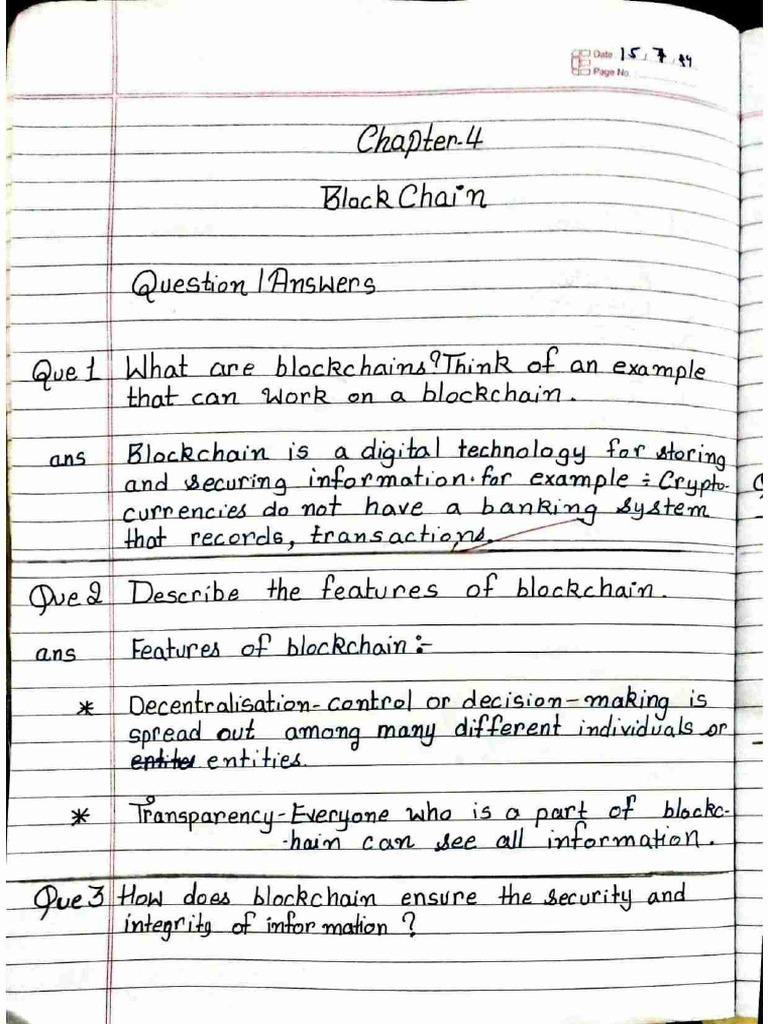 Date 15.7.24
Page No.
Chapter-4
BlockChain
Question/Answers
Que 1 What are blockchains? Think of an example
that can work on a blockchain.
ans Blockchain is a digital technology for storing
and securing information. for example :- Crypto-
currencies do not have a banking system
that records, transactions.
Que 2 Describe the features of blockchain.
ans Features of blockchain:-
* Decentralisation-control or decision-making is
spread out among many different individuals or
entites entities.
* Transparency-Everyone who is a part of blockc-
-hain can see all information.
Que 3 How does blockchain ensure the security and
integrity of information ?